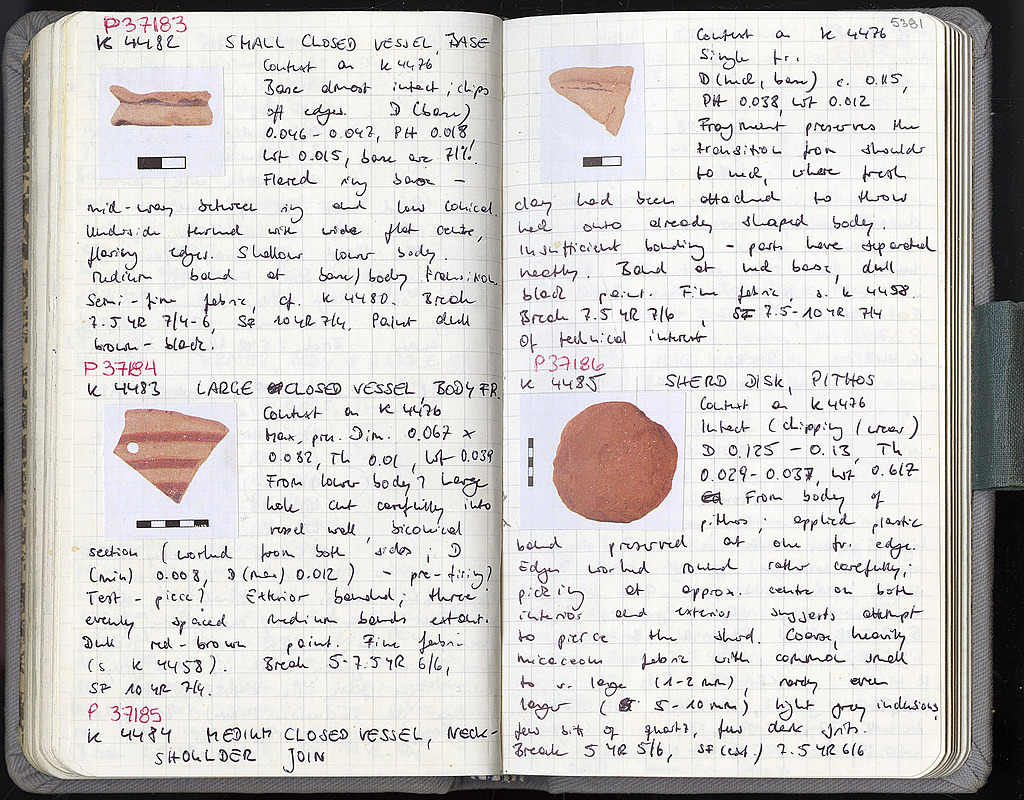 P37183
K 4482 SMALL CLOSED VESSEL, BASE
Context as K 4476
Base almost intact; chips
off edges. D (base)
0.046-0.047, PH 0.018
Wt 0.015, base arc 71%.
Flared ring base -
mid-way between ring and low conical.
Underside turned with wide flat centre,
flaring edges. Shallow lower body.
Medium band at base/body transition.
Semi-fine fabric, cf. K 4480. Break
7.5 YR 7/4-6, SF 10 YR 7/4. Paint dull
brown-black.
P 37184
K 4483 LARGE CLOSED VESSEL, BODY FR.
Context as K 4476
Max. pres. Dim. 0.067 x
0.082, Th 0.01, Wt 0.039
From lower body? Large
hole cut carefully into
vessel wall, biconical
section (worked from both sides; D
(min) 0.008, D (max) 0.012) - pre-firing?
Test-piece? Exterior banded; three
evenly spaced medium bands extant.
Dull red-brown paint. Fine fabric
(s. K 4458). Break 5-7.5 YR 6/6,
SF 10 YR 7/4.
P 37185
K 4484 MEDIUM CLOSED VESSEL, NECK-
SHOULDER JOIN
5381
Context as K 4476
Single fr.
D (neck, base) c. 0.115,
PH 0.038, Wt 0.012
Fragment preserves the
transition from shoulder
to neck, where fresh
clay had been attached to throw
neck onto already shaped body.
Insufficient bonding - parts have separated
neatly. Band at neck base, dull
black paint. Fine fabric, s. K 4458.
Break 7.5 YR 7/6, SF 7.5-10 YR 7/4
Of technical interest
P 37186
K 4485 SHERD DISK, PITHOS
Context as K 4476
Intact (chipping / wear)
D 0.125 - 0.13, Th
0.029-0.037, Wt 0.617
From body of
pithos; applied plastic
band preserved at one fr. edge.
Edges worked round rather carefully;
picking at approx. centre on both
interior and exterior suggests attempt
to pierce the sherd. Coarse, heavily
micaceous fabric with common small
to v. large (1-2 mm), rarely even
larger (5-10 mm) light gray inclusions,
few bits of quartz, few dark grits.
Break 5 YR 5/6, SF (ext.) 7.5 YR 6/6